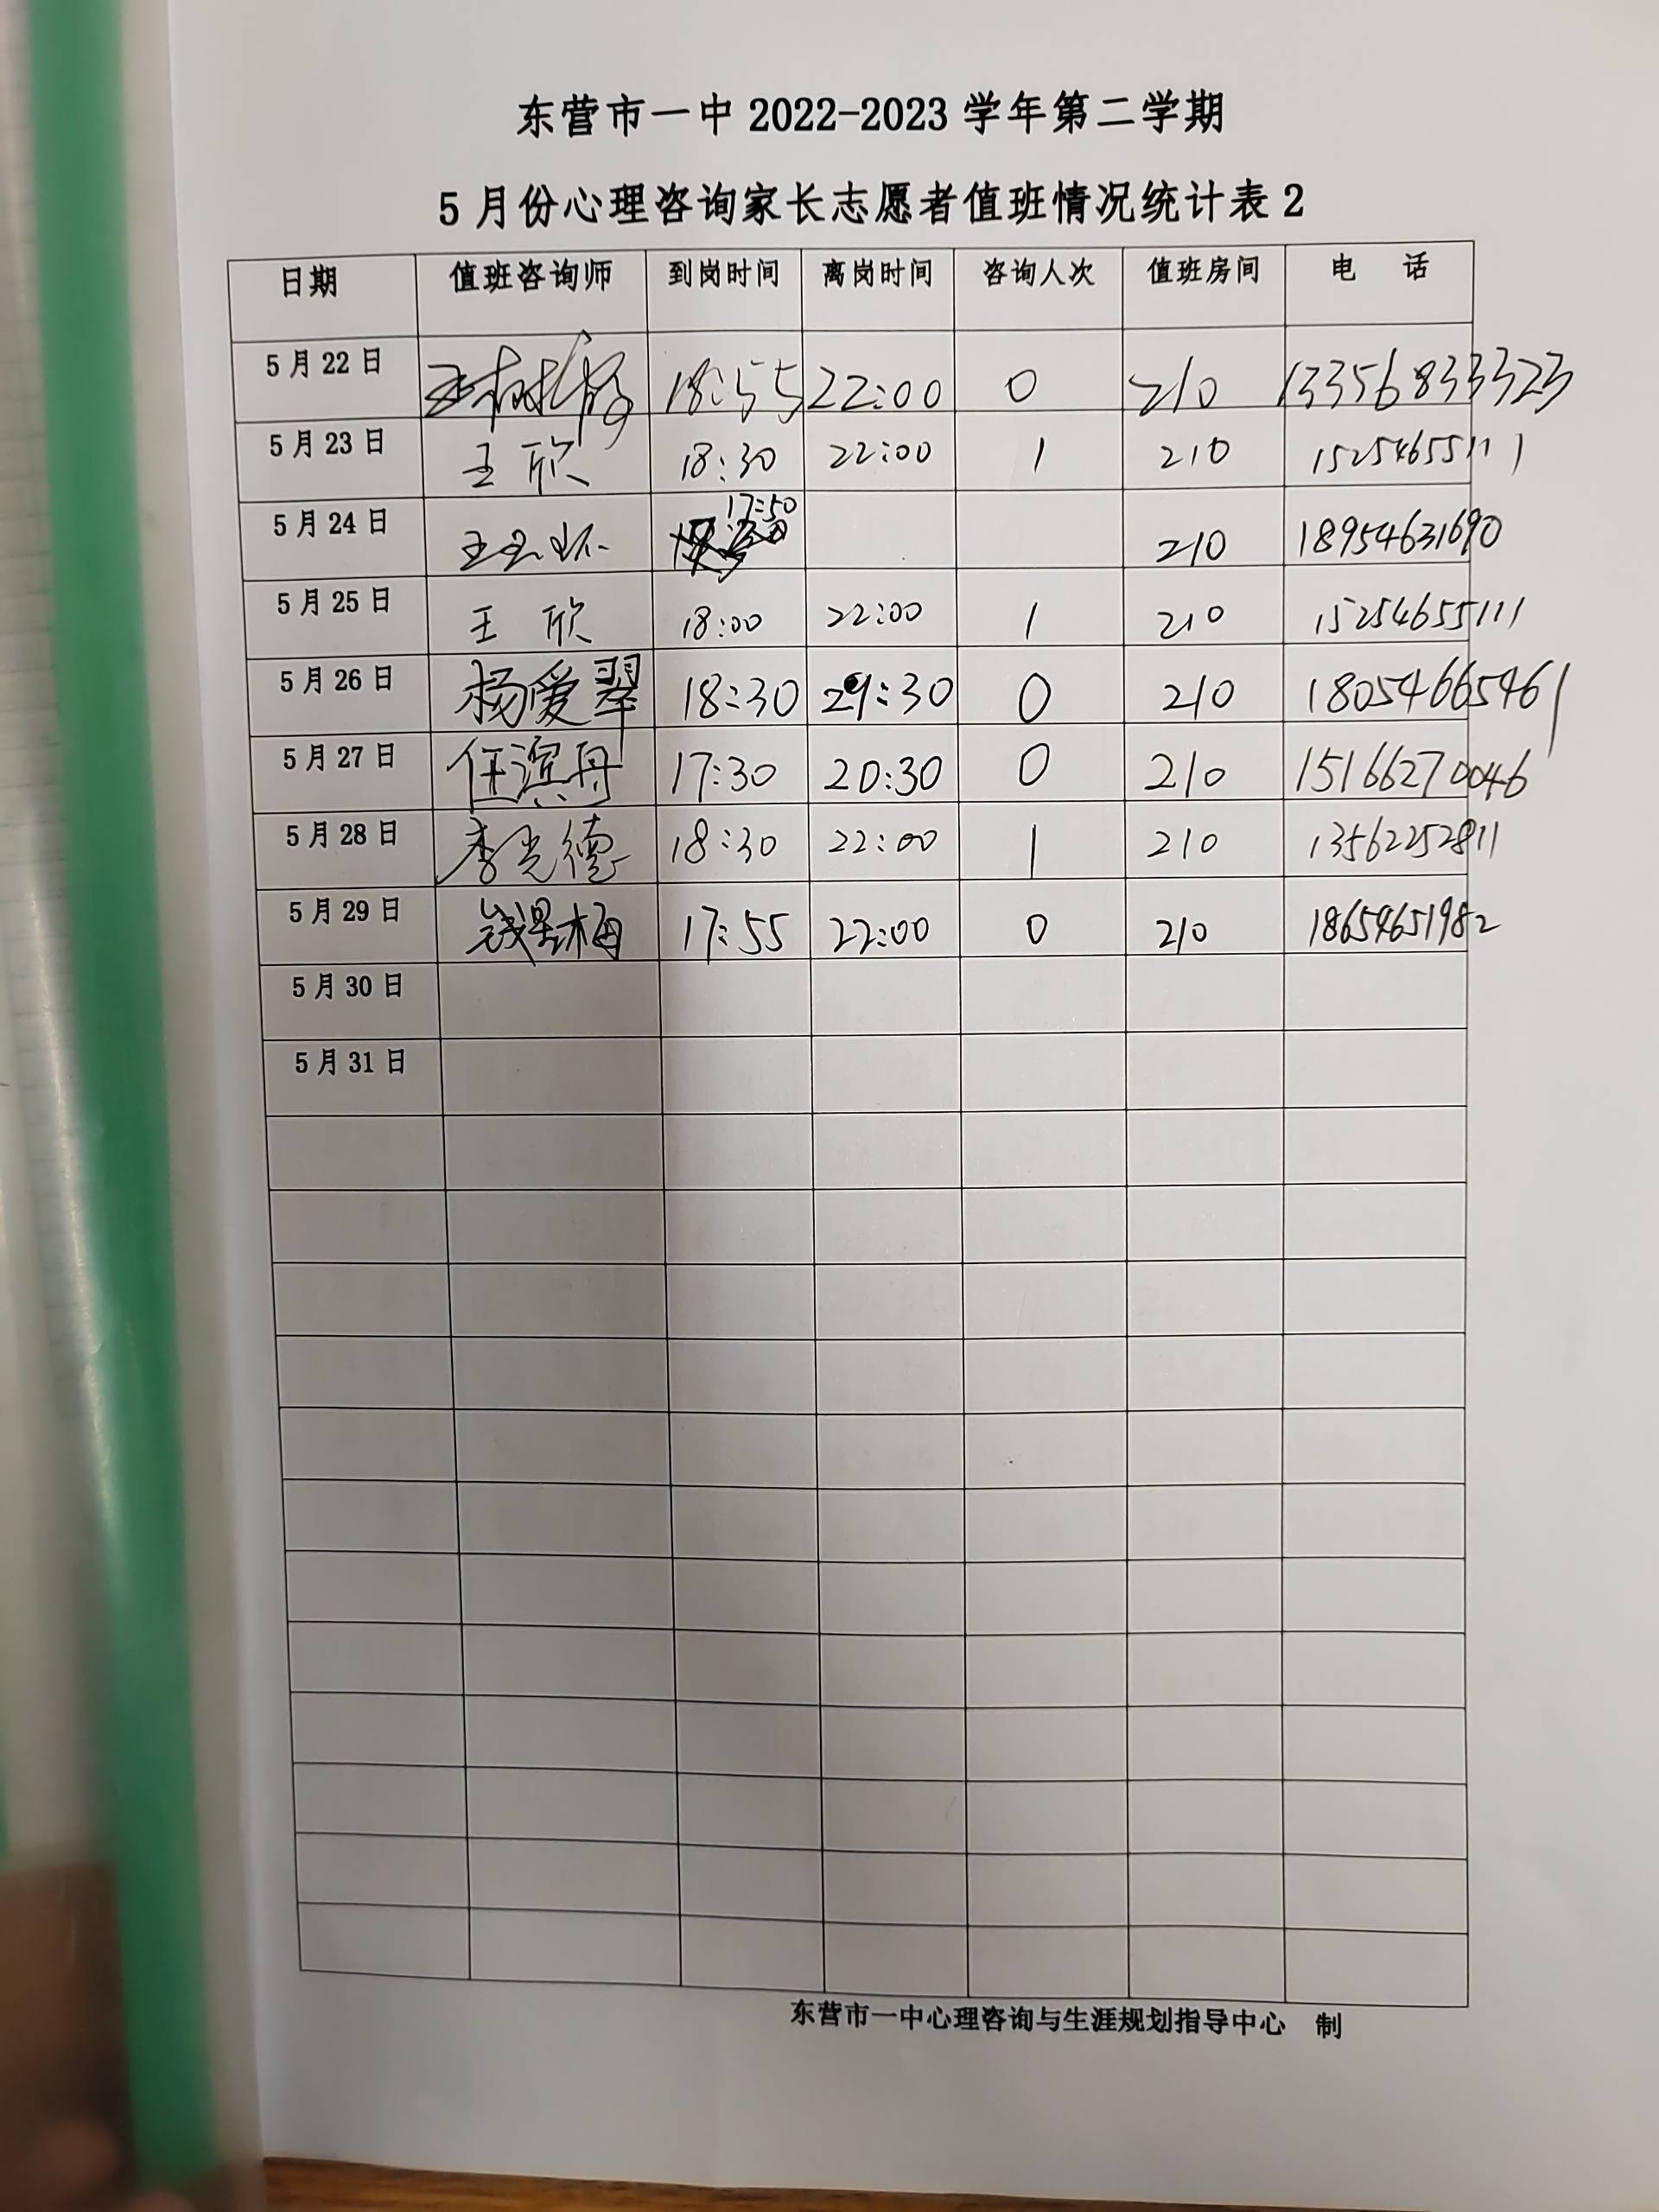 东营市一中 2022-2023 学年第二学期
5 月份心理咨询家长志愿者值班情况统计表 2
日期 值班咨询师 到岗时间 离岗时间 咨询人次 值班房间 电 话
5 月 22 日 18:55 22:00 0 210 13356833323
5 月 23 日 王欣 18:30 22:00 1 210 15254655111
5 月 24 日 17:50 210 18954631690
5 月 25 日 王欣 18:00 22:00 1 210 15254655111
5 月 26 日 杨爱翠 18:30 21:30 0 210 18054665461
5 月 27 日 任滨丹 17:30 20:30 0 210 15166270046
5 月 28 日 李光德 18:30 22:00 1 210 13562252811
5 月 29 日 钱星梅 17:55 22:00 0 210 18654651982
5 月 30 日
5 月 31 日
东营市一中心理咨询与生涯规划指导中心 制